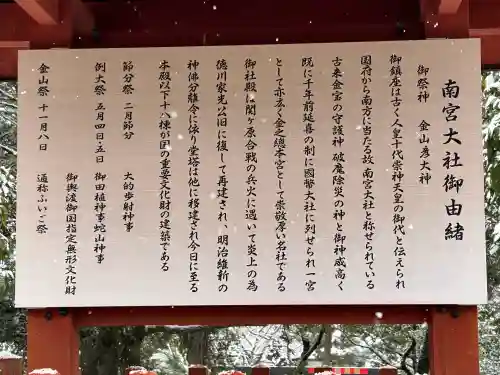 南宮大社御由緒
御祭神　金山彦大神
御鎮座は古く人皇十代崇神天皇の御代と伝えられ
国府から南方に当たる故 南宮大社と称せられている
古来金宝の守護神 破魔除災の神と御神威高く
既に千年前延喜の制に國幣大社に列せられ一宮
として亦広く金之總本宮として崇敬厚い名社である
御社殿は関ヶ原合戦の兵火に遇いて炎上の為
徳川家光公旧に復して再建され、明治維新の
神佛分離令に依り堂塔は他に移建され今日に至る
本殿以下十八棟が国の重要文化財の建築である
節分祭　二月節分　大的歩射神事
例大祭　五月四日・五日　御田植神事蛇山神事
御輿渡御国指定無形文化財
金山祭　十一月八日　通称ふいご祭